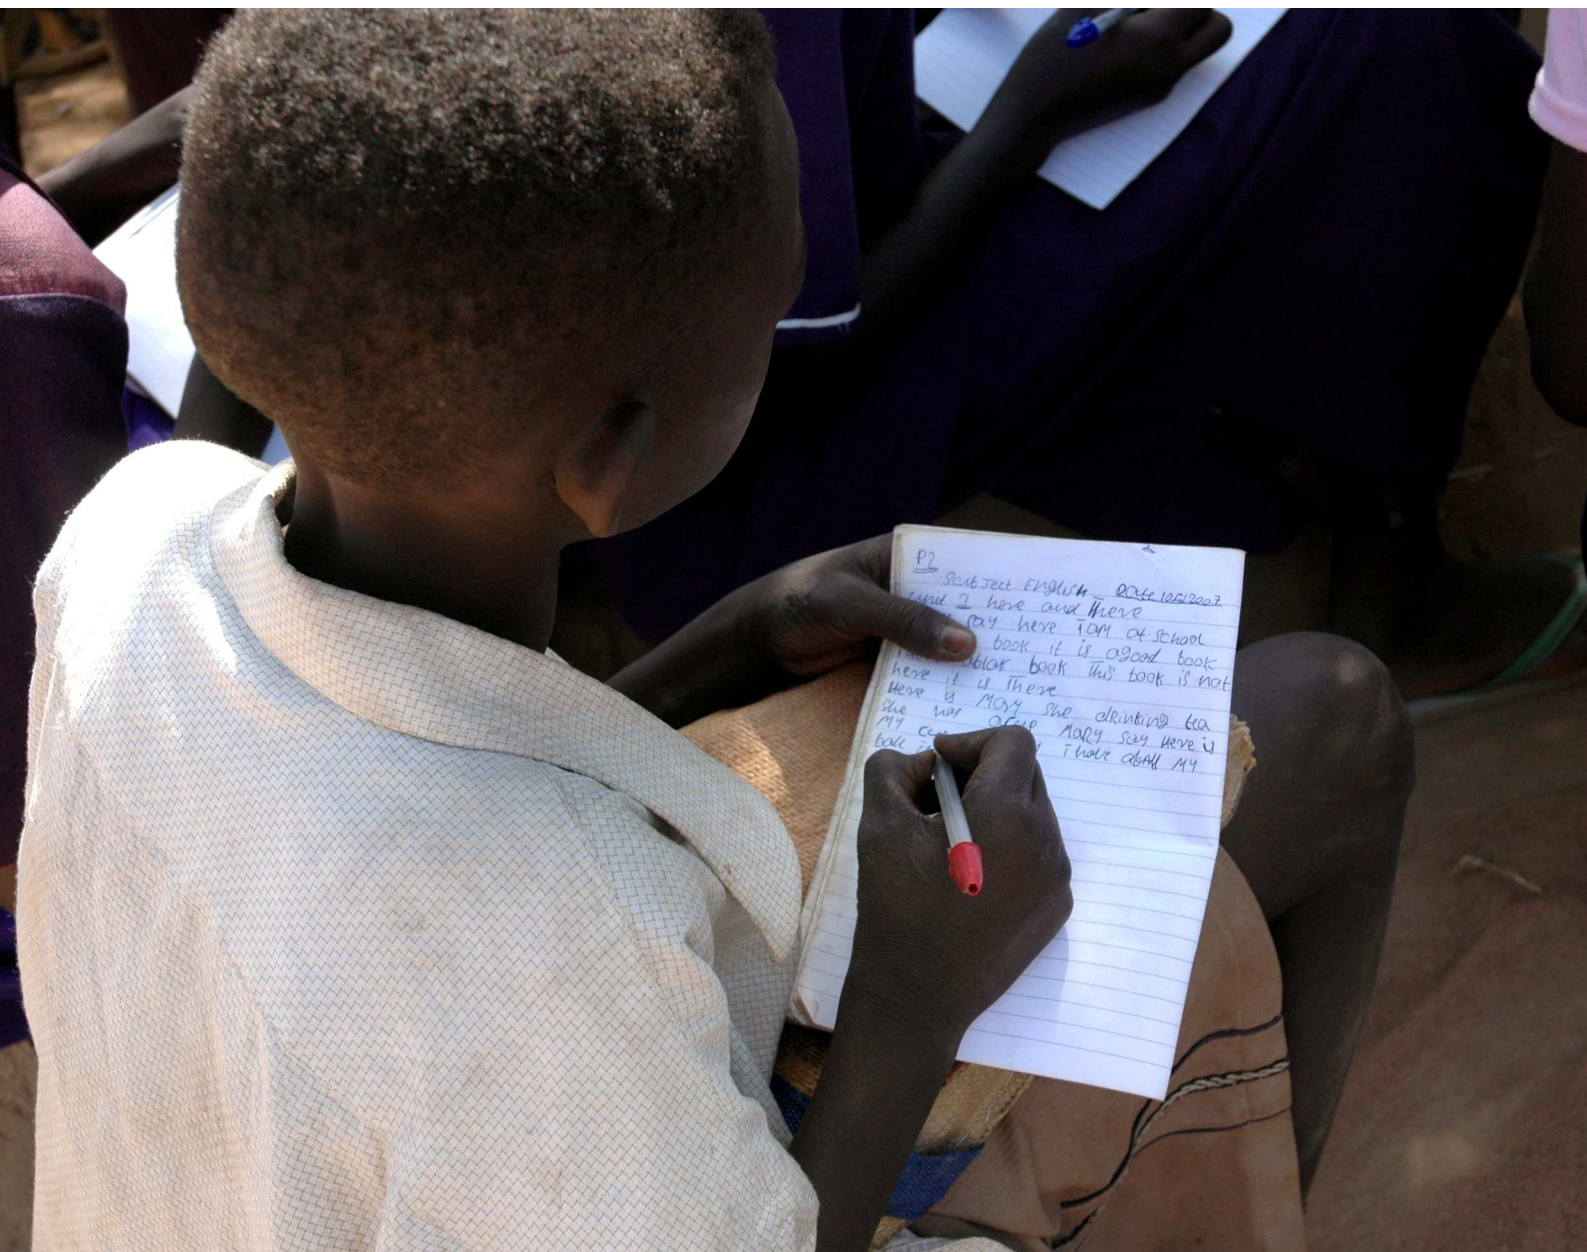 P2
Subject English Date 10512007
Unit 2 here and there
say here I am at school
book it is agood book
ablak book This book is not
here it is There
Here is Mary she dRinking tea
she has acup MaRy say Here is
My
ball i have aball My